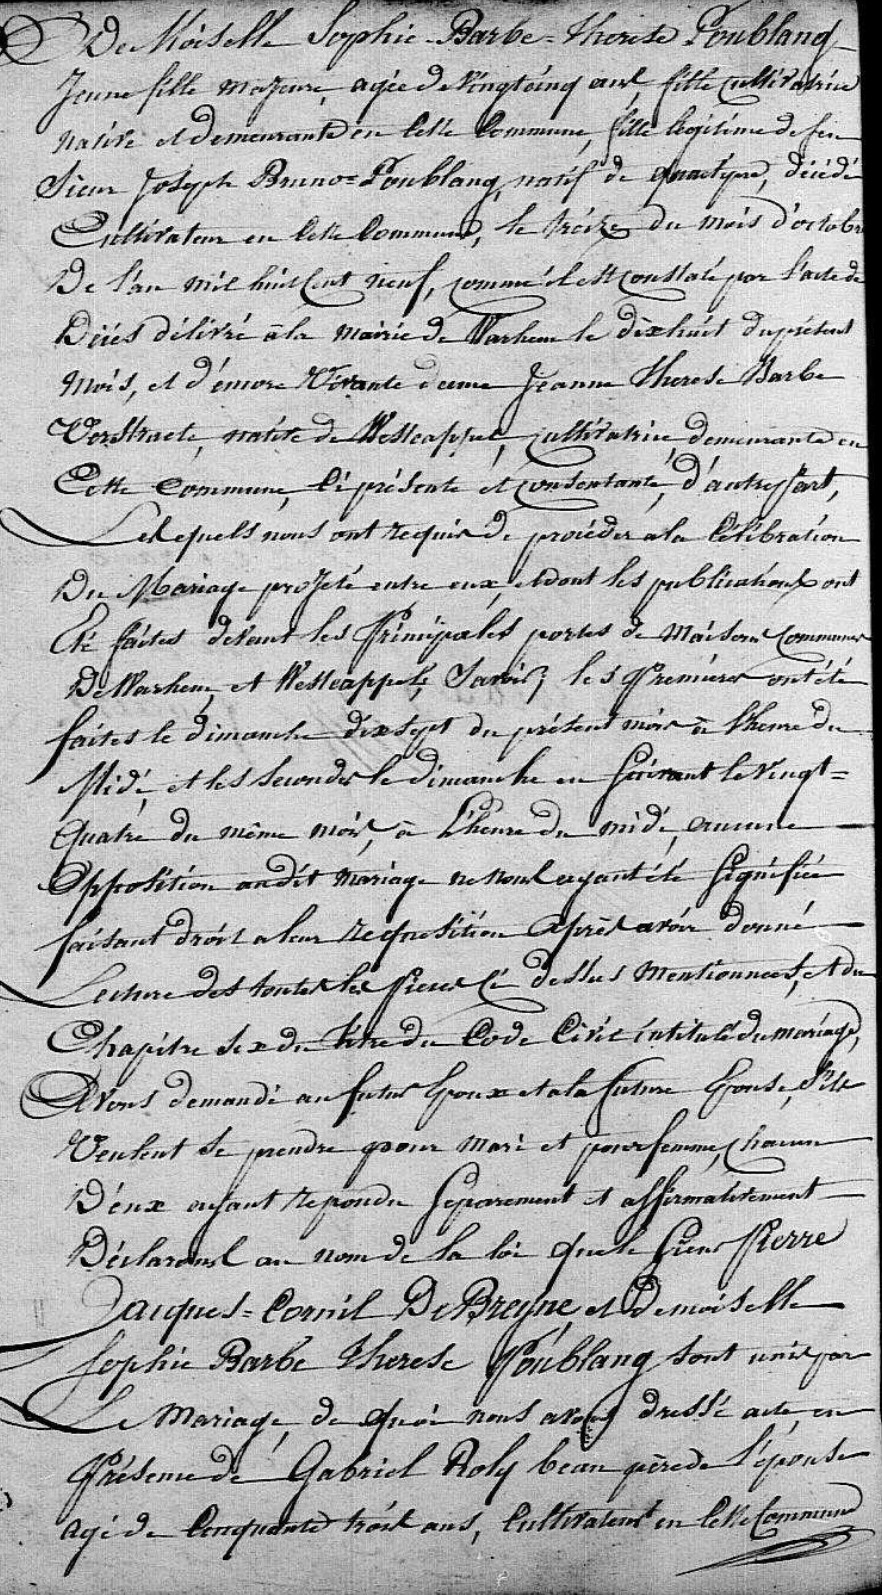 De Moiselle Sophie-Barbe-Therese Poublang
Jeune fille majeure, agée de vingt cinq ans, fille cultivatrice
native et demeurante en cette Commune, fille legitime de feu
Sieur Joseph Bruno-Poublang, natif de quaetÿpre, décédé
Cultivateur en cette Commune, le treize du mois d'octobre
De l'an mil huit Cent neuf, comme il est constaté par l'acte de
Décés délivré à la mairie de Warhem le dix huit du présent
mois, et d'encore Vivante dame Jeanne Therese Barbe
Verstraete, native de Westcappel, cultivatrice demeurante en
Cette Commune, ci présente et consentante, d'autre part,
Lesquels nous ont requis de procéder a la Célébration
Du Mariage projeté entre eux, et dont les publications ont
Eté faites devant les Principales portes de Maisons Communes
De Warhem, et Westcappel, Savoir; les Premiéres ont été
faites le dimanche dix sept du présent mois à l'heure du
Midi, et les Secondes le dimanche en Suivant le vingt-
quatre du même mois, à L'heure du midi, aucune
Opposition audit Mariage ne nous ayant été Signifiée
faisant droit a leur requisition Après avoir donné
Lecture des toutes les Pieces Ci dessus Mentionnées, et du
Chapitre Six du titre du Code Civil intitulé du mariage,
Avons demandé au futur Epoux et a la future Epouse, S'ils
Veulent se prendre pour mari et pour femme, Chacun
D'eux ayant repondu Separement et affirmativement
Déclarons au nom de la loi que le Sieur Pierre
Jacques-Cornil DeBreyne, et Demoiselle
Sophie Barbe Therese Poublang sont unis par
Le Mariage, de quoi nous avons dressé acte, en
Présence de Gabriel Roly beau père de L'épouse
agé de Cinquante trois ans, Cultivateur en cette Commune